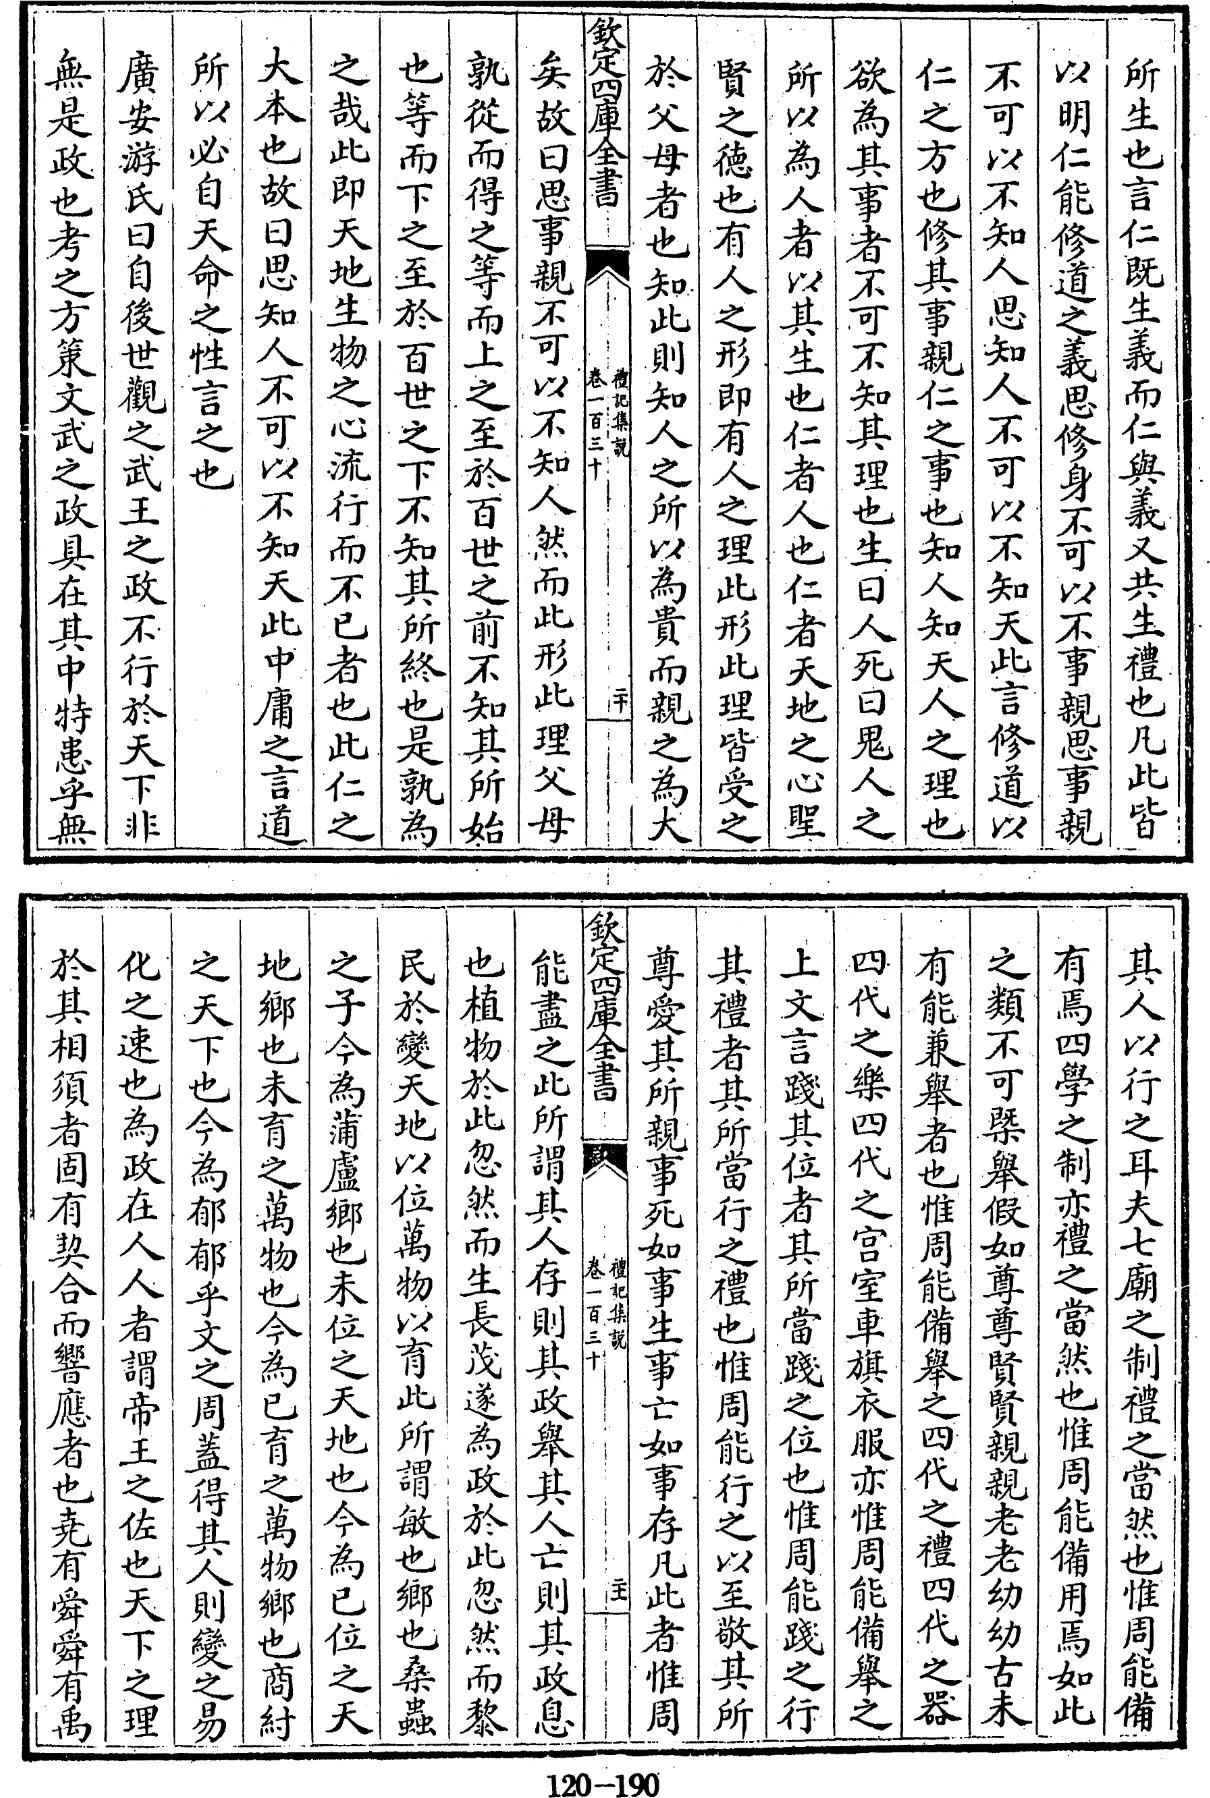 所生也言仁既生義而仁與義又共生禮也凡此皆
以明仁能修道之義思修身不可以不事親思事親
不可以不知人思知人不可以不知天此言修道以
仁之方也修其事親仁之事也知人知天人之理也
欲為其事者不可不知其理也生曰人死曰鬼人之
所以為人者以其生也仁者人也仁者天地之心聖
賢之德也有人之形即有人之理此形此理皆受之
於父母者也知此則知人之所以為貴而親之為大
欽定四庫全書
禮記集說
卷一百三十
二十
矣故曰思事親不可以不知人然而此形此理父母
孰從而得之等而上之至於百世之前不知其所始
也等而下之至於百世之下不知其所終也是孰為
之哉此即天地生物之心流行而不已者也此仁之
大本也故曰思知人不可以不知天此中庸之言道
所以必自天命之性言之也
廣安游氏曰自後世觀之武王之政不行於天下非
無是政也考之方策文武之政具在其中特患乎無
其人以行之耳夫七廟之制禮之當然也惟周能備
有焉四學之制亦禮之當然也惟周能備用焉如此
之類不可槩舉假如尊尊賢賢親親老老幼幼古未
有能兼舉者也惟周能備舉之四代之禮四代之器
四代之樂四代之宫室車旗衣服亦惟周能備舉之
上文言踐其位者其所當踐之位也惟周能踐之行
其禮者其所當行之禮也惟周能行之以至敬其所
尊愛其所親事死如事生事亡如事存凡此者惟周
欽定四庫全書
禮記集說
卷一百三十
二十一
能盡之此所謂其人存則其政舉其人亡則其政息
也植物於此忽然而生長茂遂為政於此忽然而黎
民於變天地以位萬物以育此所謂敏也鄉也桑蟲
之子今為蒲盧鄉也未位之天地也今為已位之天
地鄉也未育之萬物也今為已育之萬物鄉也商紂
之天下也今為郁郁乎文之周蓋得其人則變之易
化之速也為政在人人者謂帝王之佐也天下之理
於其相須者固有契合而響應者也堯有舜舜有禹
120-190